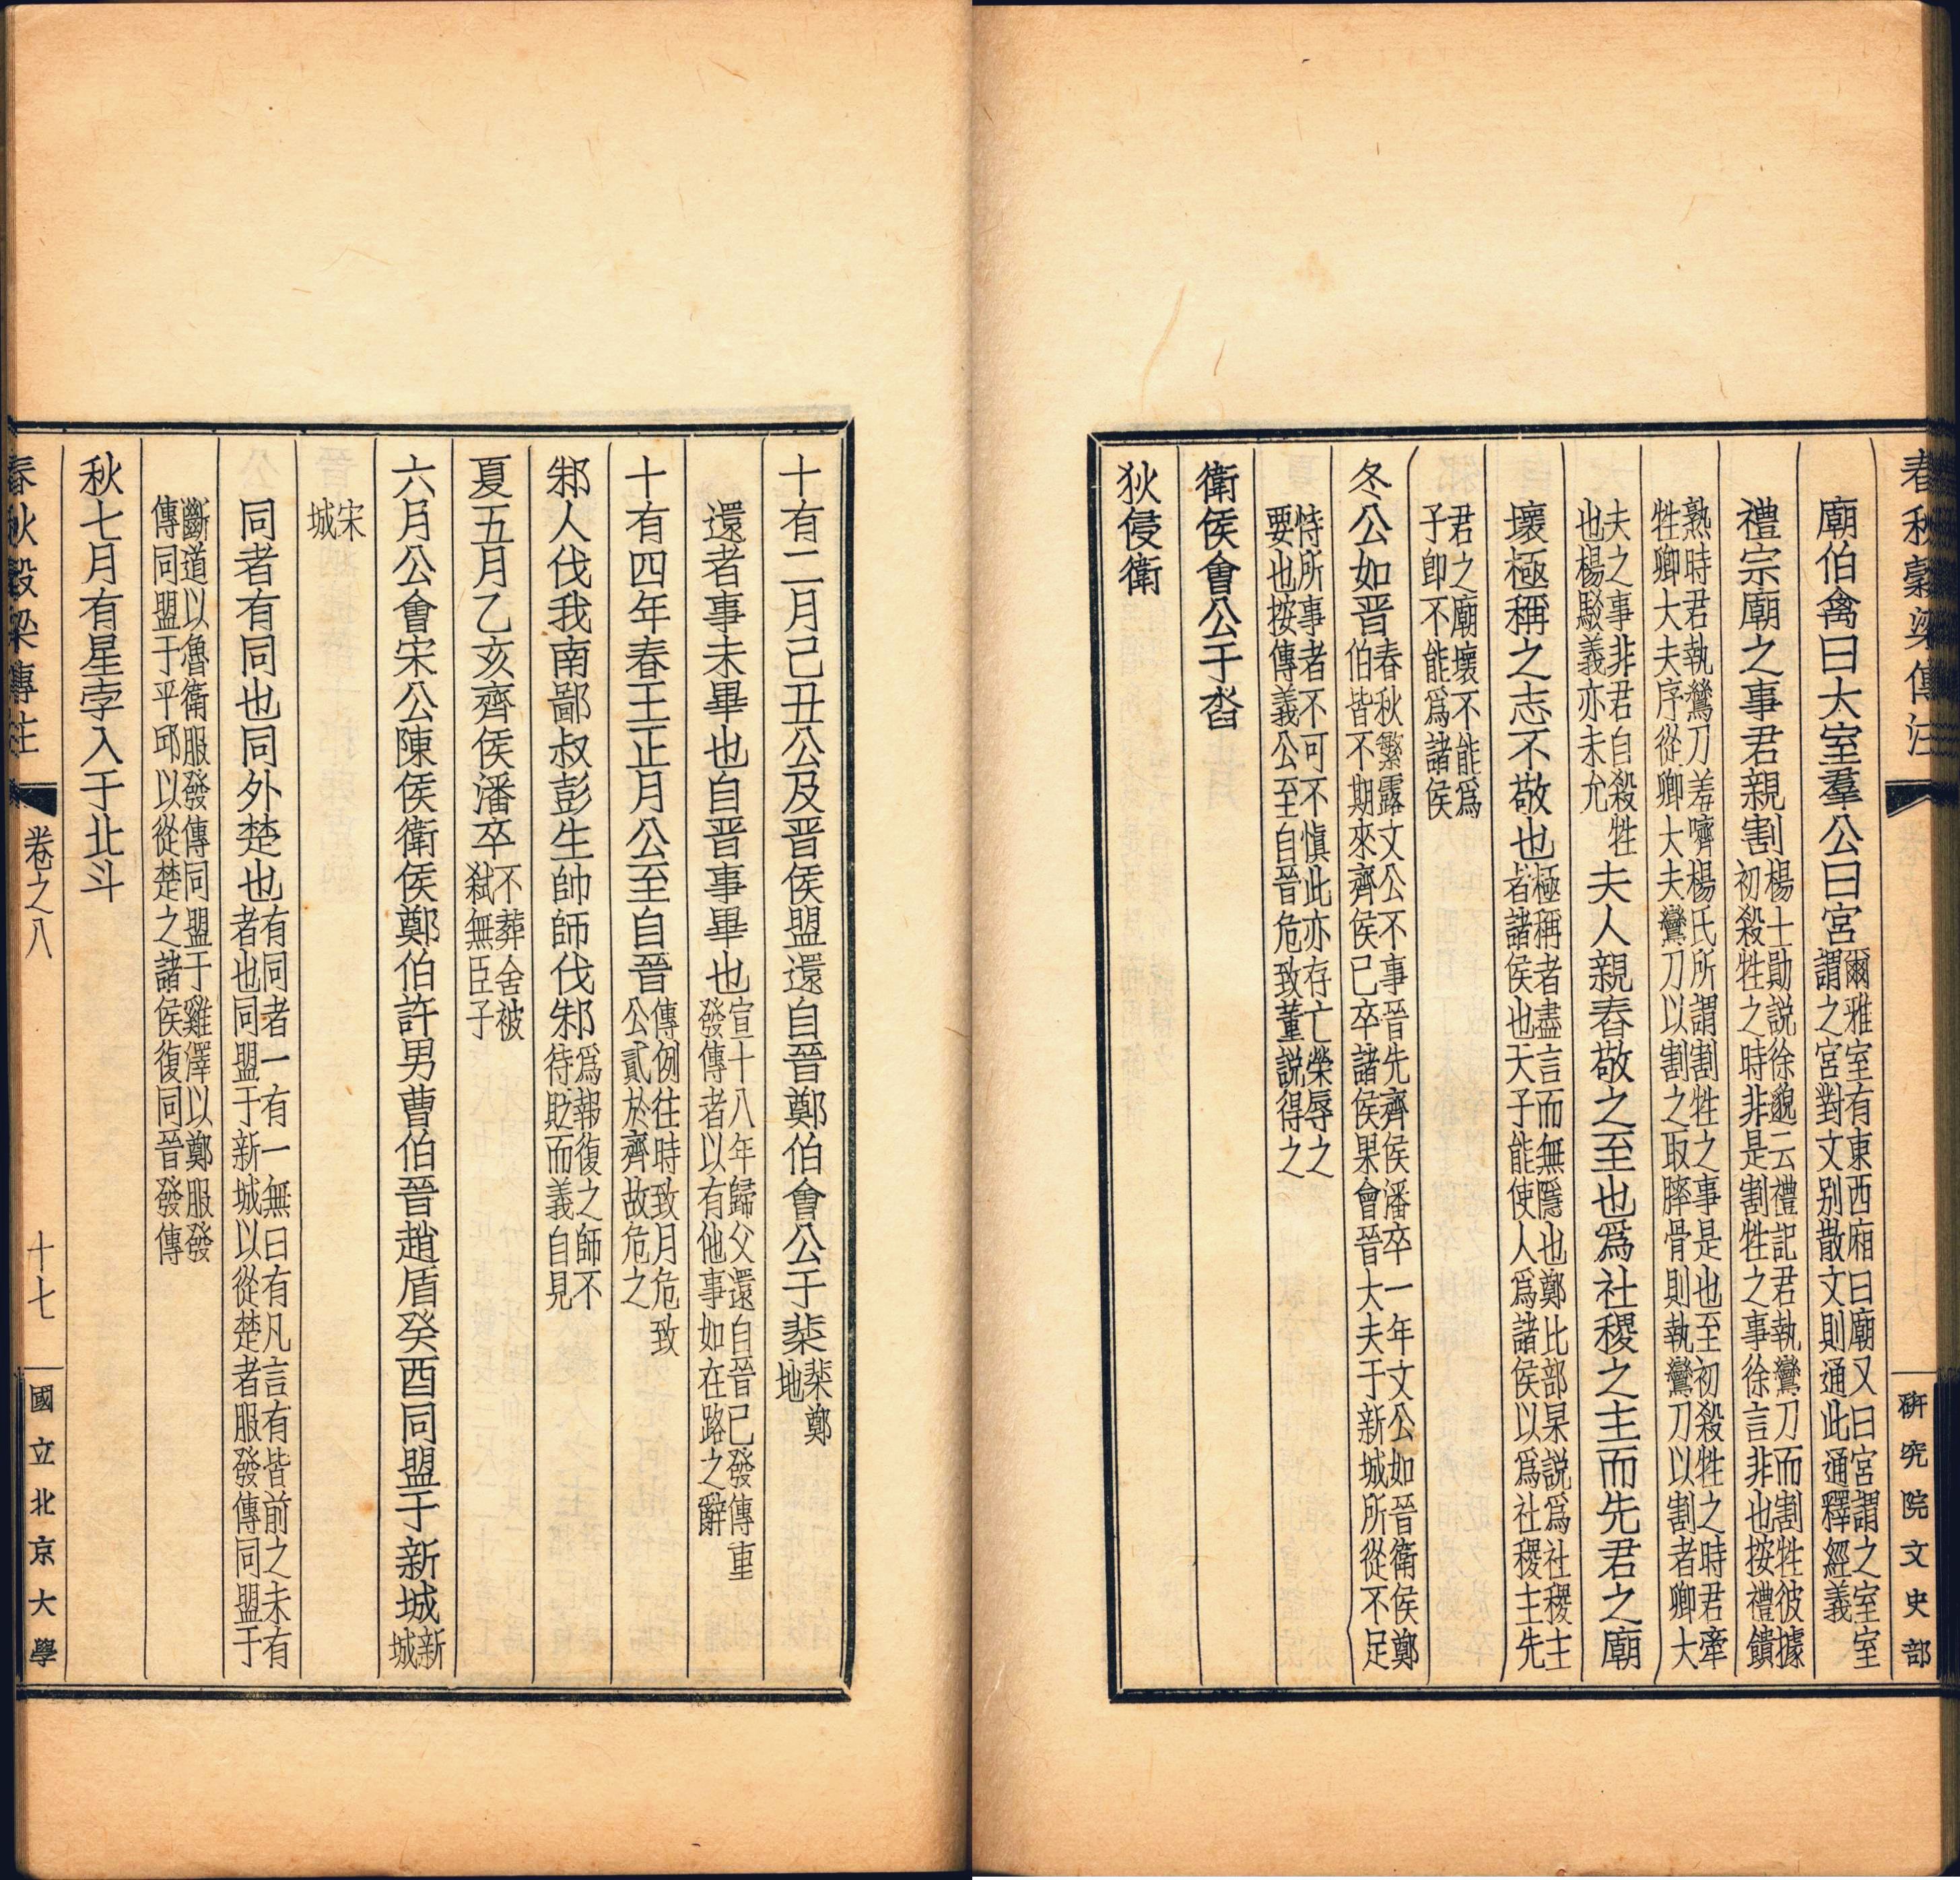 春秋穀梁傳注
研究院文史部
廟伯禽曰大室羣公曰宮爾雅室有東西廂曰廟又曰宮謂之室室
謂之宮對文別散文則通此通釋經義
禮宗廟之事君親割楊士勛説徐邈云禮記君執鸞刀而割牲彼據
初殺牲之時非是割牲之事徐言非也按禮饋
熟時君執鸞刀羞嚌楊氏所謂割牲之事是也至初殺牲之時君牽
牲卿大夫序從卿大夫鸞刀以割之取膟骨則執鸞刀以割者卿大
夫之事非君自殺牲
也楊駁義亦未允
夫人親舂敬之至也爲社稷之主而先君之廟
壞極稱之志不敬也極稱者盡言而無隱也鄭比部杲説爲社稷主
者諸侯也天子能使人爲諸侯以爲社稷主先
君之廟壞不能爲
子卽不能爲諸侯
冬公如晉春秋繁露文公不事晉先齊侯潘卒一年文公如晉衛侯鄭
伯皆不期來齊侯已卒諸侯果會晉大夫于新城所從不足
恃所事者不可不慎此亦存亡榮辱之
要也按傳義公至自晉危致董説得之
衛侯會公于沓
狄侵衛
十有二月己丑公及晉侯盟還自晉鄭伯會公于棐棐鄭
地
還者事未畢也自晉事畢也宣十八年歸父還自晉已發傳重
發傳者以有他事如在路之辭
十有四年春王正月公至自晉傳例往時致月危致
公貳於齊故危之
邾人伐我南鄙叔彭生帥師伐邾爲報復之師不
待貶而義自見
夏五月乙亥齊侯潘卒不葬舍被
弑無臣子
六月公會宋公陳侯衛侯鄭伯許男曹伯晉趙盾癸酉同盟于新城新
城
宋
城
同者有同也同外楚也有同者一有一無曰有凡言有皆前之未有
者也同盟于新城以從楚者服發傳同盟于
斷道以魯衛服發傳同盟于雞澤以鄭服發
傳同盟于平邱以從楚之諸侯復同晉發傳
秋七月有星孛入于北斗
春秋穀梁傳注
卷之八
十七
國立北京大學